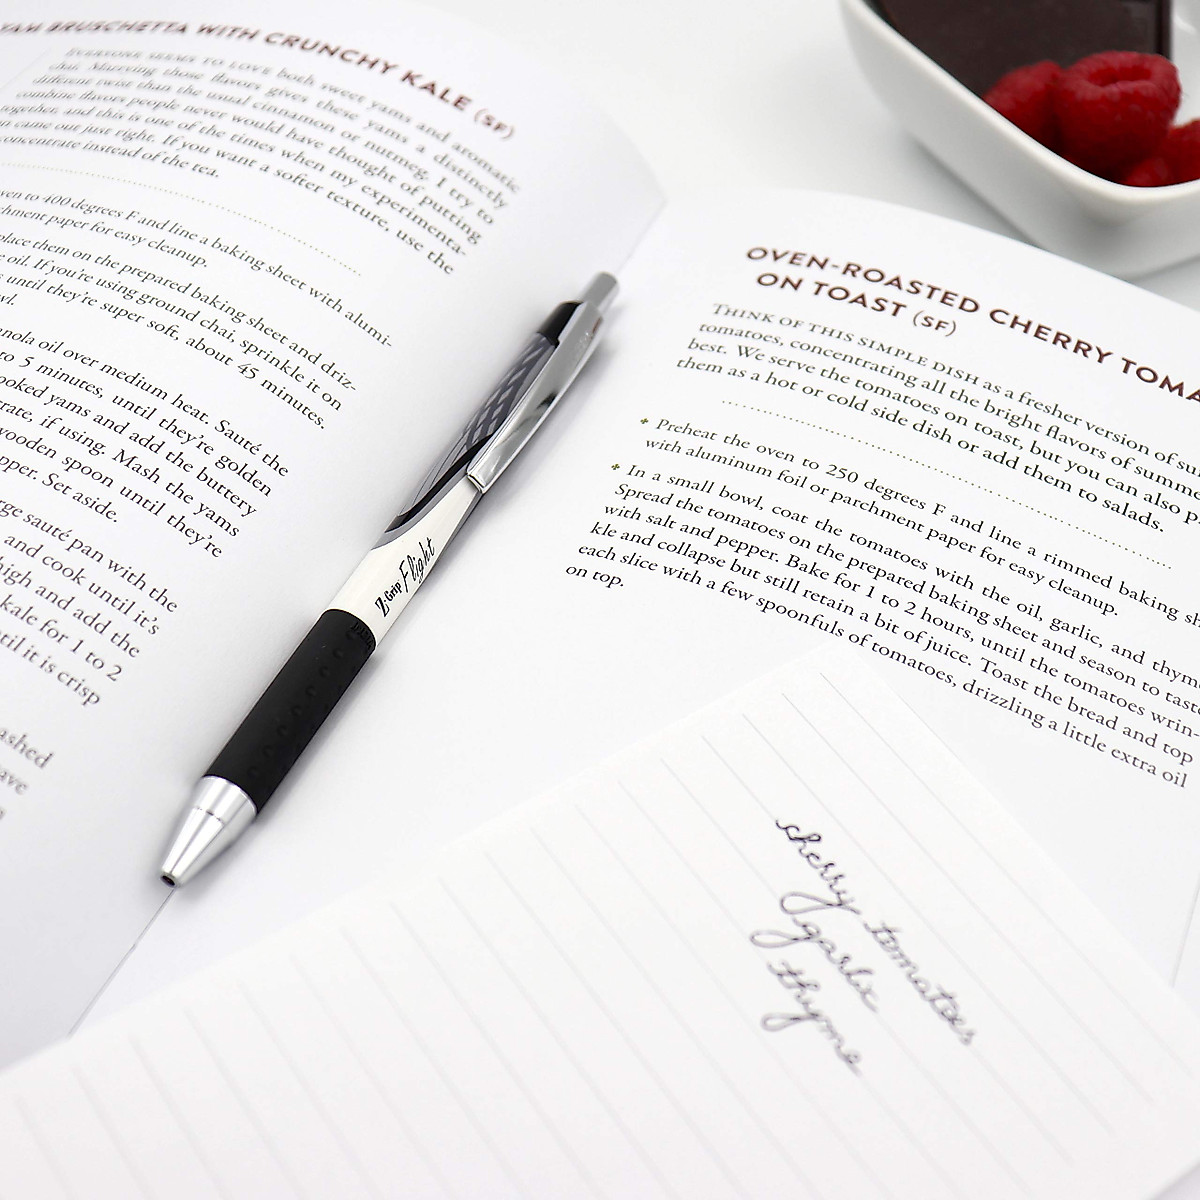 YAM BRUSCHETTA WITH CRUNCHY KALE (SF)
EVERYONE SEEMS TO LOVE both sweet yams and aromatic
chai. Marrying those flavors gives these yams a distinctly
different twist than the usual cinnamon or nutmeg. I try to
combine flavors people never would have thought of putting
together, and this is one of the times when my experimenta-
n came out just right. If you want a softer texture, use the
concentrate instead of the tea.
ven to 400 degrees F and line a baking sheet with alumi-
chment paper for easy cleanup.
place them on the prepared baking sheet and driz-
e oil. If you're using ground chai, sprinkle it on
s until they're super soft, about 45 minutes.
wl.
nola oil over medium heat. Sauté the
to 5 minutes, until they're golden
ooked yams and add the buttery
rate, if using. Mash the yams
wooden spoon until they're
pper. Set aside.
rge sauté pan with the
and cook until it's
high and add the
kale for 1 to 2
til it is crisp
ashed
ave
Z-Grip Flight
OVEN-ROASTED CHERRY TOMA
ON TOAST (SF)
THINK OF THIS SIMPLE DISH as a fresher version of su
tomatoes, concentrating all the bright flavors of summe
best. We serve the tomatoes on toast, but you can also p
them as a hot or cold side dish or add them to salads.
Preheat the oven to 250 degrees F and line a rimmed baking sh
with aluminum foil or parchment paper for easy cleanup.
In a small bowl, coat the tomatoes with the oil, garlic, and thyme
Spread the tomatoes on the prepared baking sheet and season to taste
with salt and pepper. Bake for 1 to 2 hours, until the tomatoes wrin-
kle and collapse but still retain a bit of juice. Toast the bread and top
each slice with a few spoonfuls of tomatoes, drizzling a little extra oil
on top.
cherry tomatoes
garlic
thyme